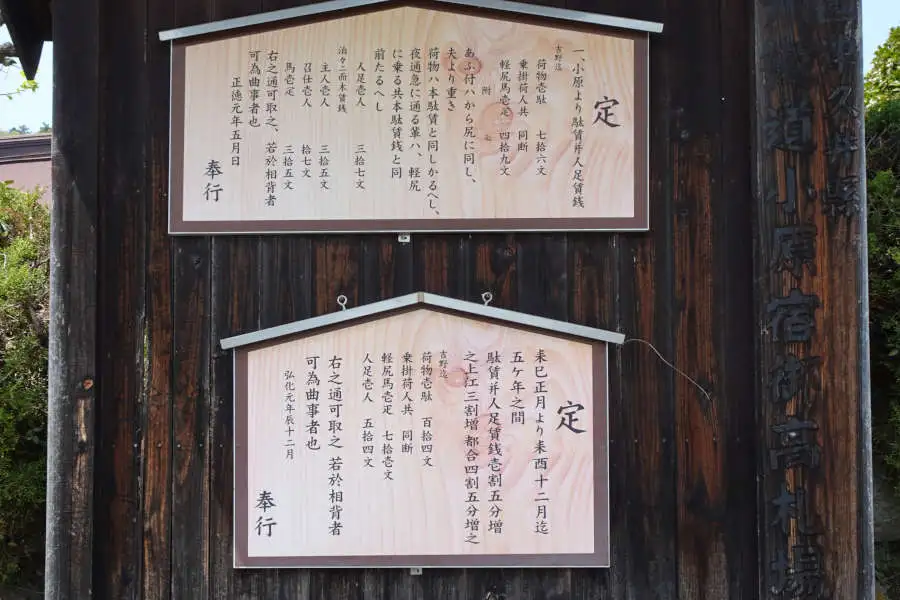 久井縣
道小原宿御高札場
定
一、小原より駄賃并人足賃銭
吉野迄
荷物壱駄 七拾六文
乗掛荷人共 同断
軽尻馬壱疋 四拾九文
附 七
あふ付ハから尻に同し、
夫より重き
荷物ハ本駄賃と同しかるへし、
夜通急に通る輩ハ、軽尻
に乗る共本駄賃銭と同
前たるへし
人足壱人 三拾七文
泊々ニ而木賃銭
主人壱人 三拾五文
召仕壱人 拾七文
馬壱疋 三拾五文
右之通可取之、若於相背者
可為曲事者也
正徳元年五月日
奉行
定
未巳正月より来酉十二月迄
五ケ年之間
駄賃并人足賃銭壱割五分増
之上江三割増都合四割五分増之
吉野迄
荷物壱駄 百拾四文
乗掛荷人共 同断
軽尻馬壱疋 七拾壱文
人足壱人 五拾四文
右之通可取之 若於相背者
可為曲事者也
弘化元年辰十二月
奉行